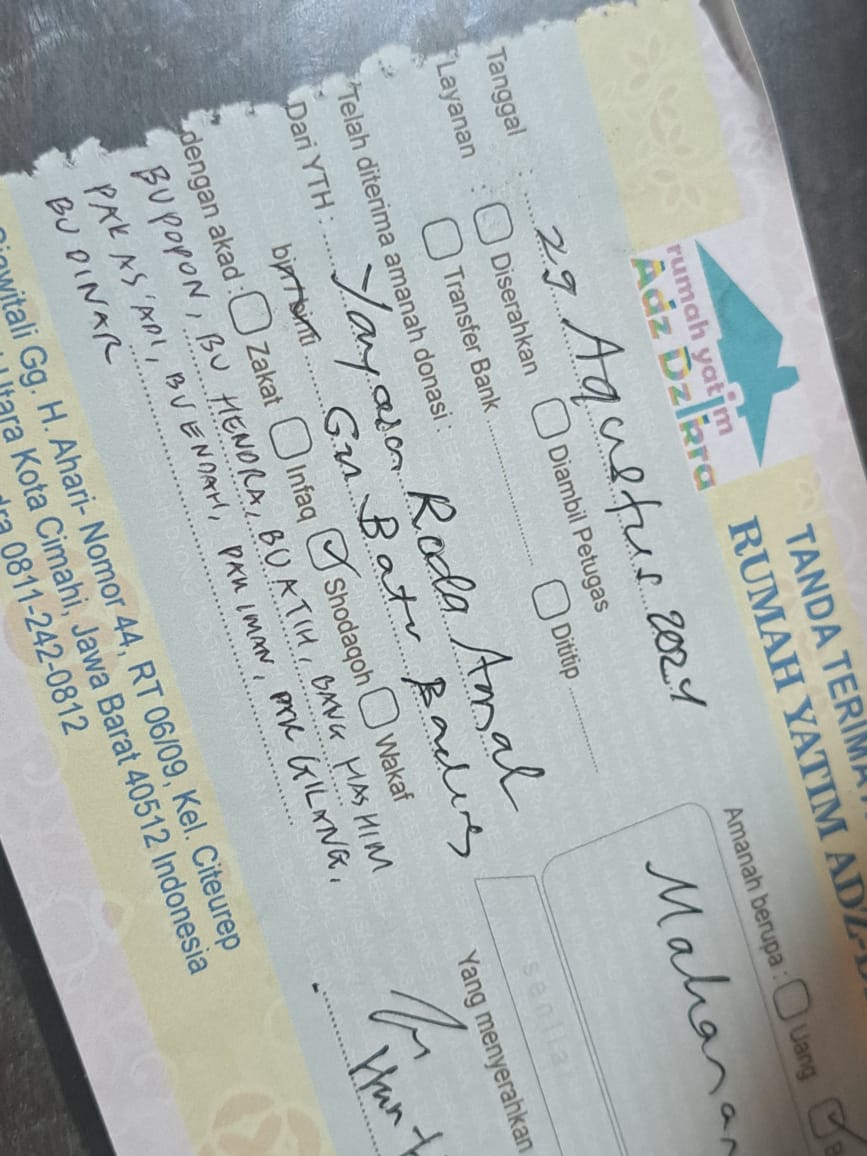 rumah yatim
Adz Dzikra
TANDA TERIMA
RUMAH YATIM ADZ
Tanggal : 29 Agustus 2024
Layanan : Diserahkan Diambil Petugas Dititip
Transfer Bank
Telah diterima amanah donasi :
Dari YTH : Yayasan Roda Amal
bin/binti Gn Batu Bandung
dengan akad : Zakat Infaq Shodaqoh Wakaf
BU POPON, BU HENDRA, BU ATIH, BANG HASHIM
PAK AS'ARI, BU ENDAH, PAK IMAN, PAK GILANG,
BU DINAR
Gg. H. Ahari- Nomor 44, RT 06/09, Kel. Citeurep
Utara Kota Cimahi, Jawa Barat 40512 Indonesia
0811-242-0812
Amanah berupa : Uang
Makanan
senilai
Yang menyerahkan